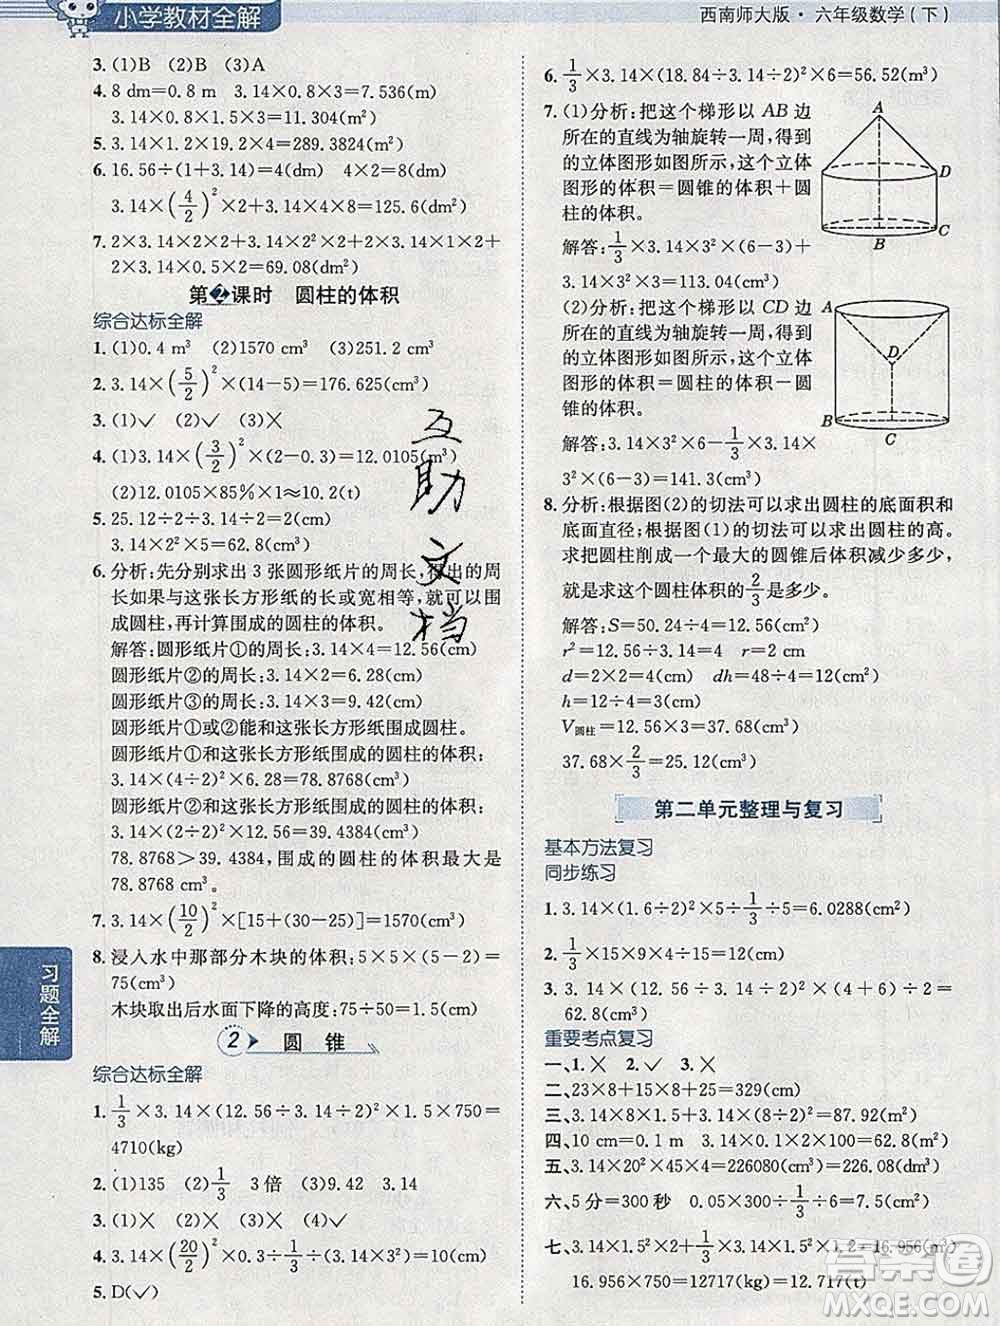 小学教材全解
西南师大版·六年级数学(下)
3.(1)B (2)B (3)A
4. 8 dm=0.8 m 3.14×0.8×3=7.536(m)
3.14×0.8×1.5×3=11.304(m²)
5. 3.14×1.2×19.2×4=289.3824(m²)
6. 16.56÷(1+3.14)=4(dm) 4×2=8(dm)
3.14×(4/2)²×2+3.14×4×8=125.6(dm²)
7. 2×3.14×2×2+3.14×2²×2+2×3.14×1×2+
3.14×0.5×2×2=69.08(m²)
第2课时 圆柱的体积
综合达标全解
1.(1)0.4 m³ (2)1570 cm³ (3)251.2 cm³
2. 3.14×(5/2)²×(14-5)=176.625(cm³)
3.(1)✓ (2)✓ (3)✕
4.(1)3.14×(3/2)²×(2-0.3)=12.0105(m³)
(2)12.0105×85%×1≈10.2(t)
5. 25.12÷2÷3.14÷2=2(cm)
3.14×2²×5=62.8(cm³)
6. 分析:先分别求出3张圆形纸片的周长,得出的周
长如果与这张长方形纸的长或宽相等,就可以围
成圆柱,再计算围成的圆柱的体积。
解答:圆形纸片①的周长:3.14×4=12.56(cm)
圆形纸片②的周长:3.14×2=6.28(cm)
圆形纸片③的周长:3.14×3=9.42(cm)
圆形纸片①或②能和这张长方形纸围成圆柱。
圆形纸片①和这张长方形纸围成的圆柱的体积:
3.14×(4÷2)²×6.28=78.8768(cm³)
圆形纸片②和这张长方形纸围成的圆柱的体积:
3.14×(2÷2)²×12.56=39.4384(cm³)
78.8768>39.4384,围成的圆柱的体积最大是
78.8768 cm³。
7. 3.14×(10/2)²×[15+(30-25)]=1570(cm³)
8. 浸入水中那部分木块的体积:5×5×(5-2)=
75(cm³)
木块取出后水面下降的高度:75÷50=1.5(cm)
2 圆锥
综合达标全解
1. 1/3×3.14×(12.56÷3.14÷2)²×1.5×750=
4710(kg)
2.(1)135 (2)1/3 3倍 (3)9.42 3.14
3.(1)✕ (2)✕ (3)✕ (4)✓
4. 3.14×(20/2)²×0.3÷1/3÷(3.14×3²)=10(cm)
5. D(✓)
习题全解
互助文档
6. 1/3×3.14×(18.84÷3.14÷2)²×6=56.52(m³)
7.(1)分析:把这个梯形以AB边
所在的直线为轴旋转一周,得到
的立体图形如图所示,这个立体
图形的体积=圆锥的体积+圆
柱的体积。
解答:1/3×3.14×3²×(6-3)+
3.14×3²×3=113.04(cm³)
A
D
B
C
(2)分析:把这个梯形以CD边
所在的直线为轴旋转一周,得到
的立体图形如图所示,这个立体
图形的体积=圆柱的体积-圆
锥的体积。
解答:3.14×3²×6-1/3×3.14×
3²×(6-3)=141.3(cm³)
A
D
B
C
8. 分析:根据图(2)的切法可以求出圆柱的底面积和
底面直径;根据图(1)的切法可以求出圆柱的高。
求把圆柱削成一个最大的圆锥后体积减少多少,
就是求这个圆柱体积的2/3是多少。
解答:S=50.24÷4=12.56(cm²)
r²=12.56÷3.14=4 r=2 cm
d=2×2=4(cm) dh=48÷4=12(cm²)
h=12÷4=3(cm)
V圆柱=12.56×3=37.68(cm³)
37.68×2/3=25.12(cm³)
第二单元整理与复习
基本方法复习
同步练习
1. 3.14×(1.6÷2)²×5÷1/3÷5=6.0288(cm²)
2. 1/3×3.14×5²×9×4÷15=12(cm)
3. 3.14×(12.56÷3.14÷2)²×(4+6)÷2=
62.8(cm³)
重要考点复习
一、1.✕ 2.✓ 3.✕
二、23×8+15×8+25=329(cm)
三、3.14×8×1.5+3.14×(8÷2)²=87.92(m²)
四、10 cm=0.1 m 3.14×2×0.1×100=62.8(m²)
五、3.14×20²×45×4=226080(cm³)=226.08(L)
六、5分=300秒 0.05×300÷1/3÷6=7.5(cm²)
七、3.14×1.5²×2×1/3+3.14×1.5²×2-1=16.956(m³)
16.956×750=12717(kg)=12.717(t)
答案圈
MXQE.COM